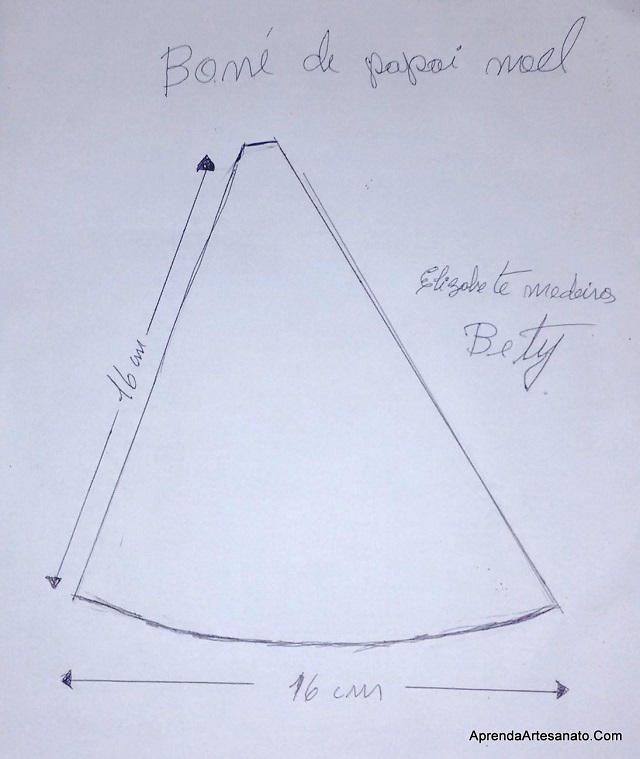 Boné de papai noel
Elizabete medeiros
Bety
16 cm
16 cm
AprendaArtesanato.Com